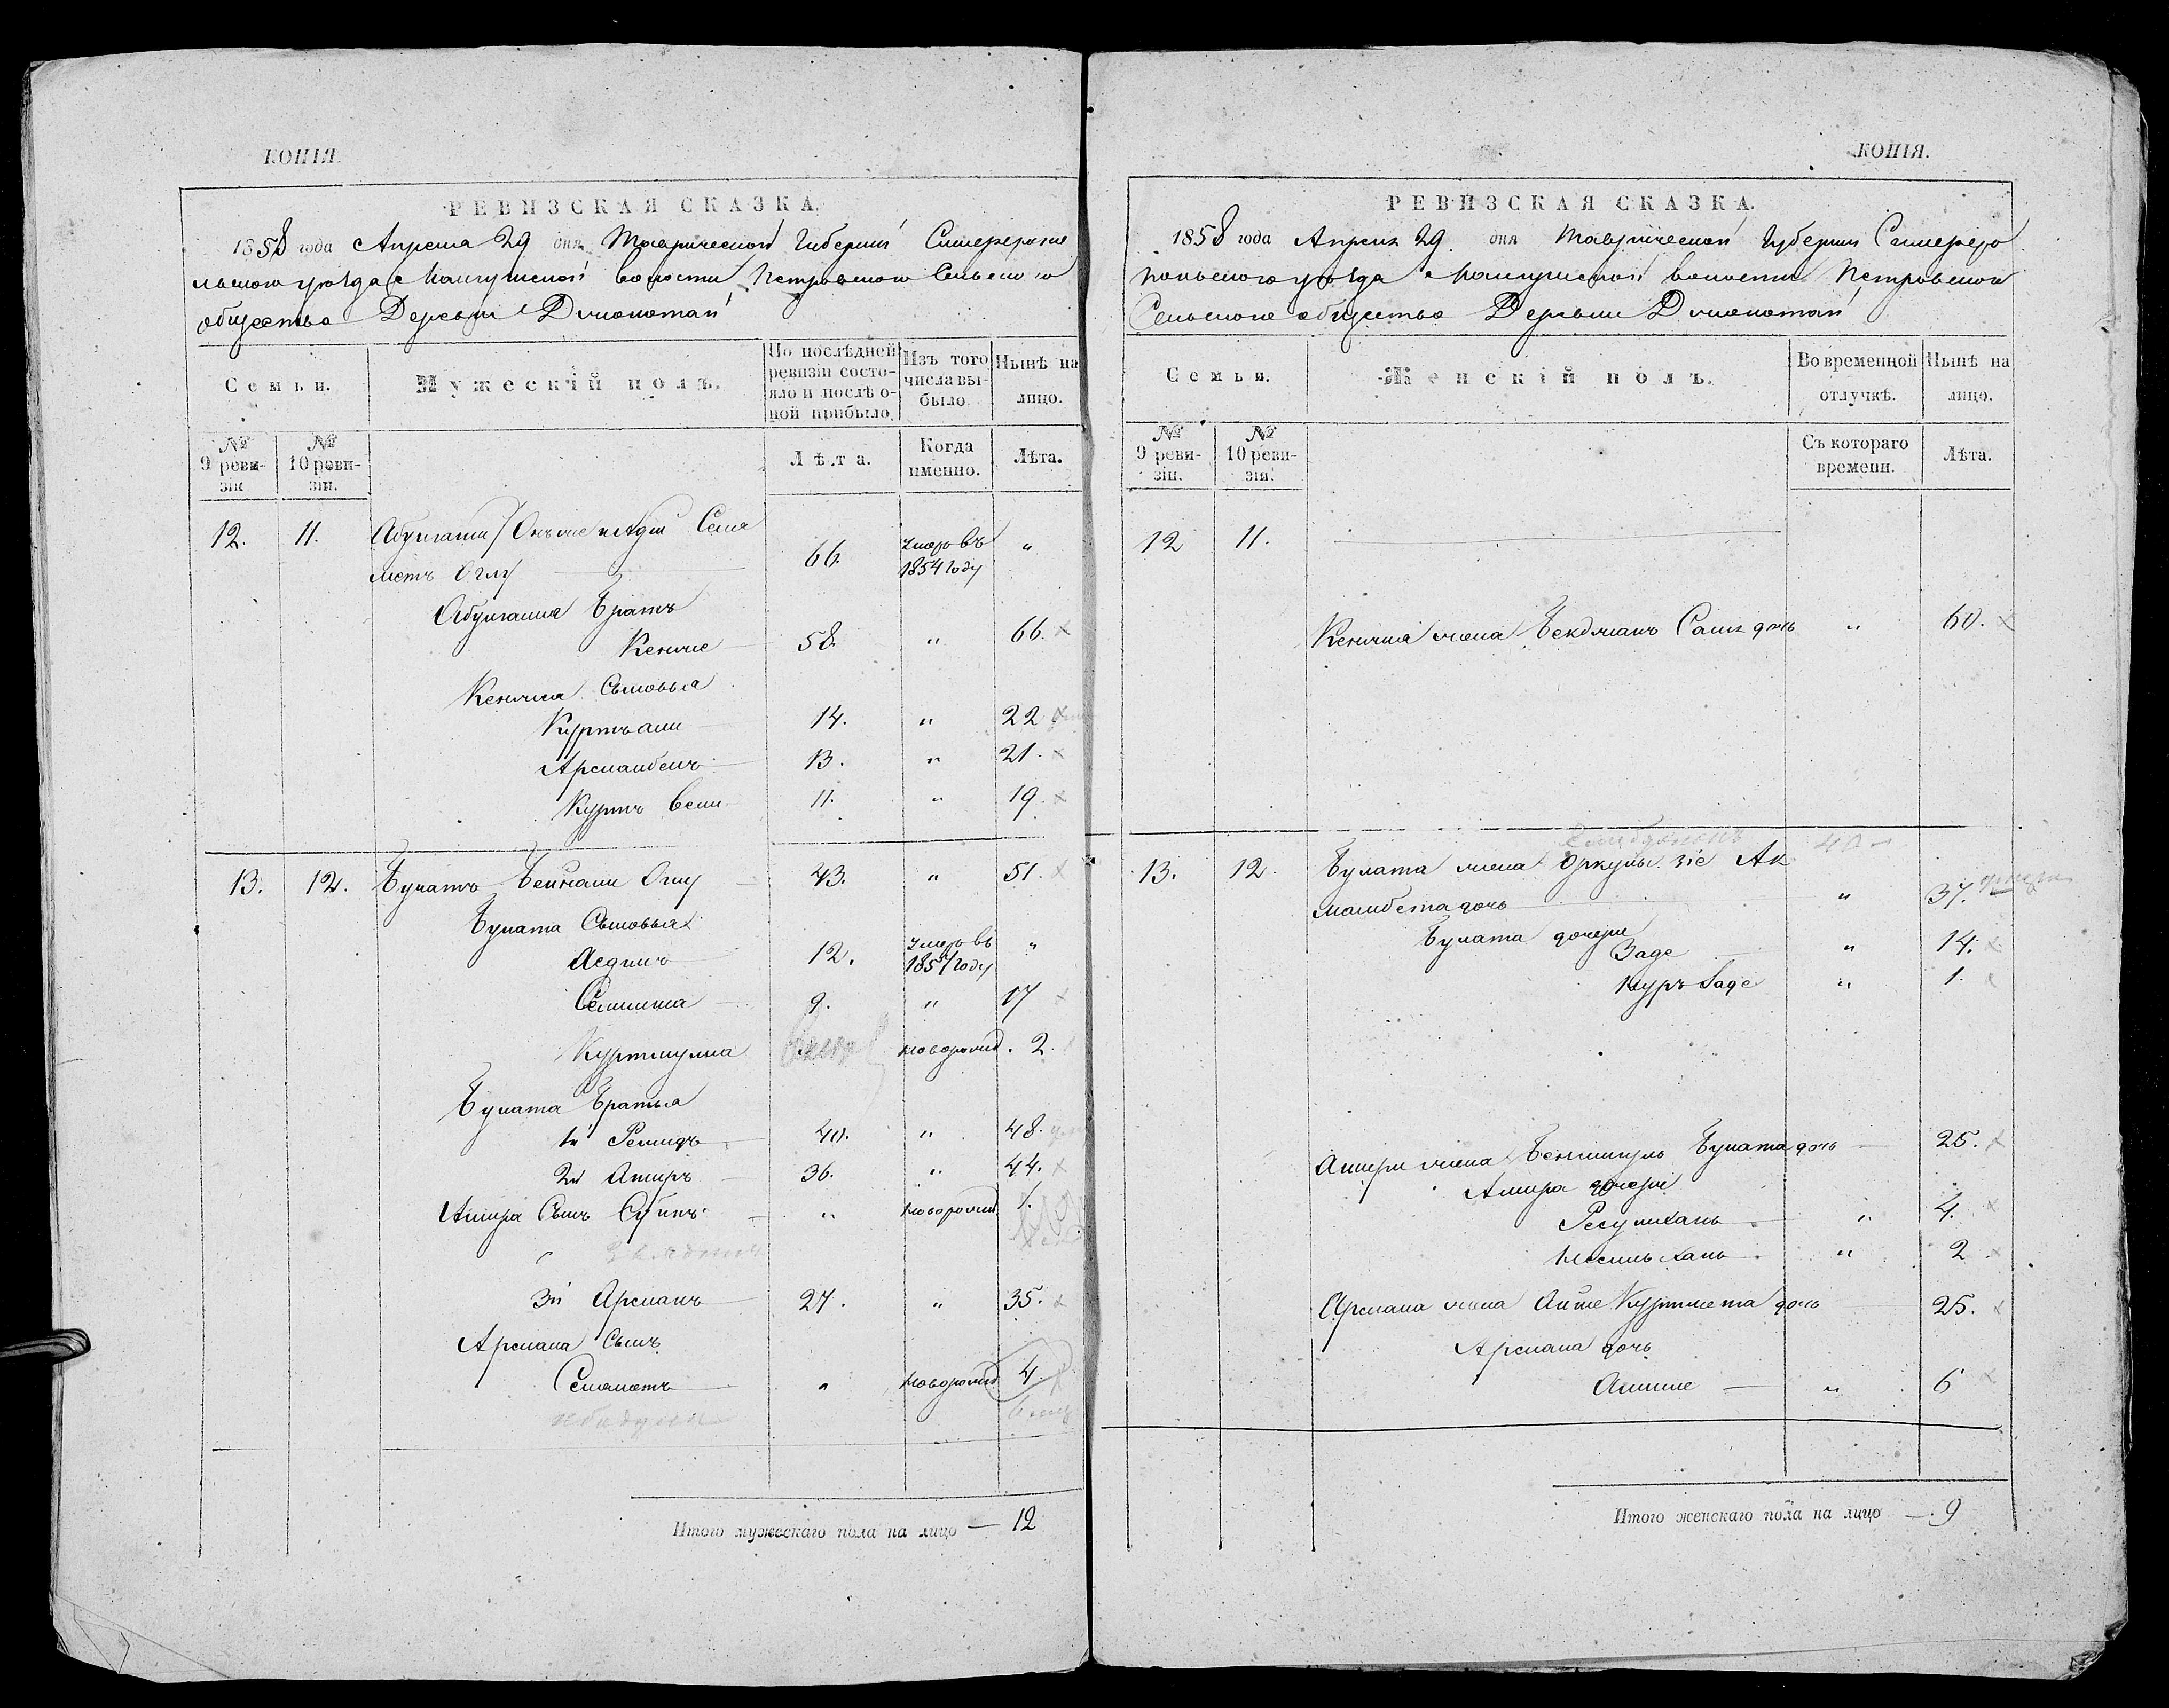 КОПІЯ.
РЕВИЗСКАЯ СКАЗКА.
1858 года Апреля 29 дня Таврической Губерніи Симферопо
льскаго уѣзда Мангушской волости Петровскаго Сельскаго
общества Деревни Джанатай
Семьи.
Мужескій полъ.
По послѣдней ревизіи состояло и послѣ оной прибыло.
Изъ того числа выбыло.
Нынѣ на лицо.
№ 9 ревизіи.
№ 10 ревизіи.
Лѣта.
Когда именно.
Лѣта.
12. 11. Абулгази Сеиа
метъ Оглу — 66. умеръ въ 1854 году "
Абулгазия Братъ
Кенже — 58. " 66.
Кенжея Сыновья
Куртъ али — 14. " 22
Арсланбекъ — 13. " 21.
Куртъ Вели — 11. " 19.
13. 12. Булатъ Бейнали Оглу — 43. " 51.
Булата Сыновья
Асдинъ — 12. умеръ въ 1857 году "
Селимша — 9. " 17
Куртмулла новорожд. 2.
Булата Братья
1й Решидъ — 40. " 48.
2й Амиръ — 36. " 44.
Амира Сынъ — " новорожд. 1.
3й Арсланъ — 27. " 35.
Арслана Сынъ
Сеяметъ — " новорожд. 4.
Итого мужескаго пола на лицо — 12
КОПІЯ.
РЕВИЗСКАЯ СКАЗКА.
1858 года Апреля 29. дня Таврической Губерніи Симферо
польскаго уѣзда Мангушской волости Петровскаго
Сельскаго общества Деревни Джанатай
Семьи.
Женскій полъ.
Во временной отлучкѣ.
Нынѣ на лицо.
№ 9 ревизіи.
№ 10 ревизіи.
Съ котораго времени.
Лѣта.
12 11.
Кенжея жена Бекджанъ Сали дочь " 60.
40
13. 12. Булата жена Ак
мамбета дочь " 37.
Булата дочери
Заде " 14.
Нуръ Заде " 1.
Амира жена Булата дочь — 25.
Амира дочери
Ресулханъ " 4.
" 2
Арслана жена Айше Куртмета дочь 25.
Арслана дочь
— " 6
Итого женскаго пола на лицо — 9